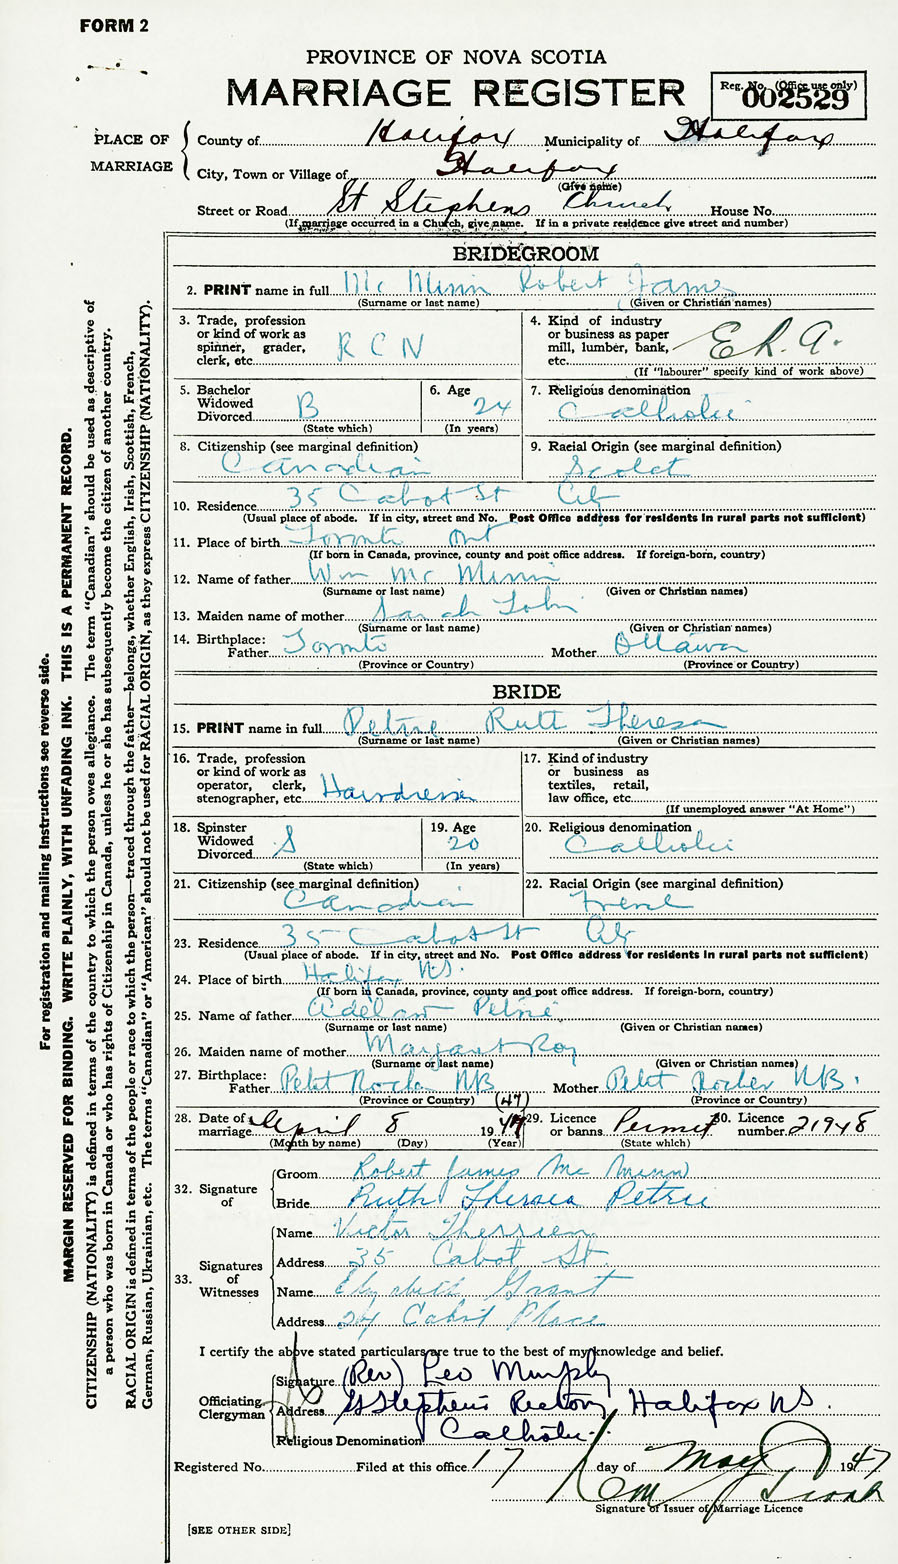 FORM 2
PROVINCE OF NOVA SCOTIA
MARRIAGE REGISTER
Reg. No. (Office use only)
002529
PLACE OF MARRIAGE
County of Halifax Municipality of Halifax
City, Town or Village of Halifax
(Give name)
Street or Road St Stephens Church House No.
(If marriage occurred in a Church, give name. If in a private residence give street and number)
BRIDEGROOM
2. PRINT name in full Mc Minn Robert James
(Surname or last name) (Given or Christian names)
3. Trade, profession or kind of work as spinner, grader, clerk, etc. R C N
4. Kind of industry or business as paper mill, lumber, bank, etc. E.R.A.
(If "labourer" specify kind of work above)
5. Bachelor Widowed Divorced B
(State which)
6. Age 24
(In years)
7. Religious denomination Catholic
8. Citizenship (see marginal definition) Canadian
9. Racial Origin (see marginal definition)
10. Residence 35 Cabot St City
(Usual place of abode. If in city, street and No. Post Office address for residents in rural parts not sufficient)
11. Place of birth Toronto Ont
(If born in Canada, province, county and post office address. If foreign-born, country)
12. Name of father Wm Mc Minn
(Surname or last name) (Given or Christian names)
13. Maiden name of mother Sarah
(Surname or last name) (Given or Christian names)
14. Birthplace: Father Toronto Mother Ottawa
(Province or Country) (Province or Country)
BRIDE
15. PRINT name in full Petrie Ruth Theresa
(Surname or last name) (Given or Christian names)
16. Trade, profession or kind of work as operator, clerk, stenographer, etc. Hairdresser
17. Kind of industry or business as textiles, retail, law office, etc.
(If unemployed answer "At Home")
18. Spinster Widowed Divorced S
(State which)
19. Age 20
(In years)
20. Religious denomination Catholic
21. Citizenship (see marginal definition) Canadian
22. Racial Origin (see marginal definition) French
23. Residence 35 Cabot St City
(Usual place of abode. If in city, street and No. Post Office address for residents in rural parts not sufficient)
24. Place of birth Halifax N.S.
(If born in Canada, province, county and post office address. If foreign-born, country)
25. Name of father Petrie
(Surname or last name) (Given or Christian names)
26. Maiden name of mother Margaret Roy
(Surname or last name) (Given or Christian names)
27. Birthplace: Father Petit Rocher NB Mother Petit Rocher N.B.
(Province or Country) (47) (Province or Country)
28. Date of marriage April 8 1947
(Month by name) (Day) (Year)
29. Licence or banns Permit
(State which)
30. Licence number 21948
32. Signature of
Groom Robert James Mc Minn
Bride Ruth Theresa Petrie
33. Signatures of Witnesses
Name Victor Therrien
Address 35 Cabot St
Name Elizabeth Grant
Address 24 Cabot Place
I certify the above stated particulars are true to the best of my knowledge and belief.
Officiating Clergyman
Signature (Rev) Leo Murphy
Address St Stephen's Rectory, Halifax N.S.
Religious Denomination Catholic
Registered No. Filed at this office 17 day of May 1947
Signature of Issuer of Marriage Licence
[SEE OTHER SIDE]
For registration and mailing instructions see reverse side.
MARGIN RESERVED FOR BINDING. WRITE PLAINLY, WITH UNFADING INK. THIS IS A PERMANENT RECORD.
CITIZENSHIP (NATIONALITY) is defined in terms of the country to which the person owes allegiance. The term "Canadian" should be used as descriptive of
a person who was born in Canada or who has rights of Citizenship in Canada, unless he or she has subsequently become the citizen of another country.
RACIAL ORIGIN is defined in terms of the people or race to which the person—traced through the father—belongs, whether English, Irish, Scottish, French,
German, Russian, Ukrainian, etc. The terms "Canadian" or "American" should not be used for RACIAL ORIGIN, as they express CITIZENSHIP (NATIONALITY).